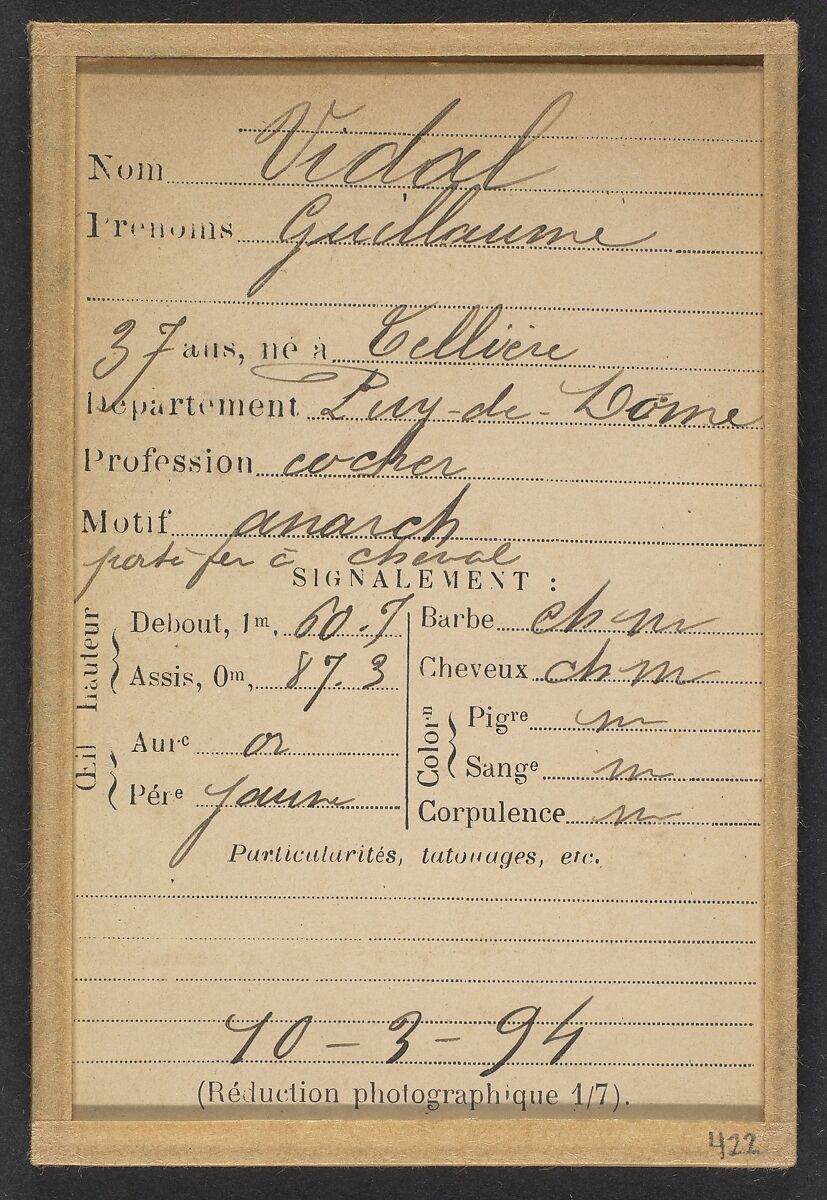 Nom Vidal
Prénoms Guillaume
37 ans, né à Tellière
Département Puy-de-Dôme
Profession cocher
Motif anarch
porte fer à cheval
SIGNALEMENT :
hauteur
Debout, 1m, 60.7
Assis, 0m, 87.3
Œil
Aure or
Pére jaune
Barbe ch m
Cheveux ch m
Colorn
Pigre m
Sange m
Corpulence m
Particularités, tatouages, etc.
10-3-94
(Réduction photographique 1/7).
422